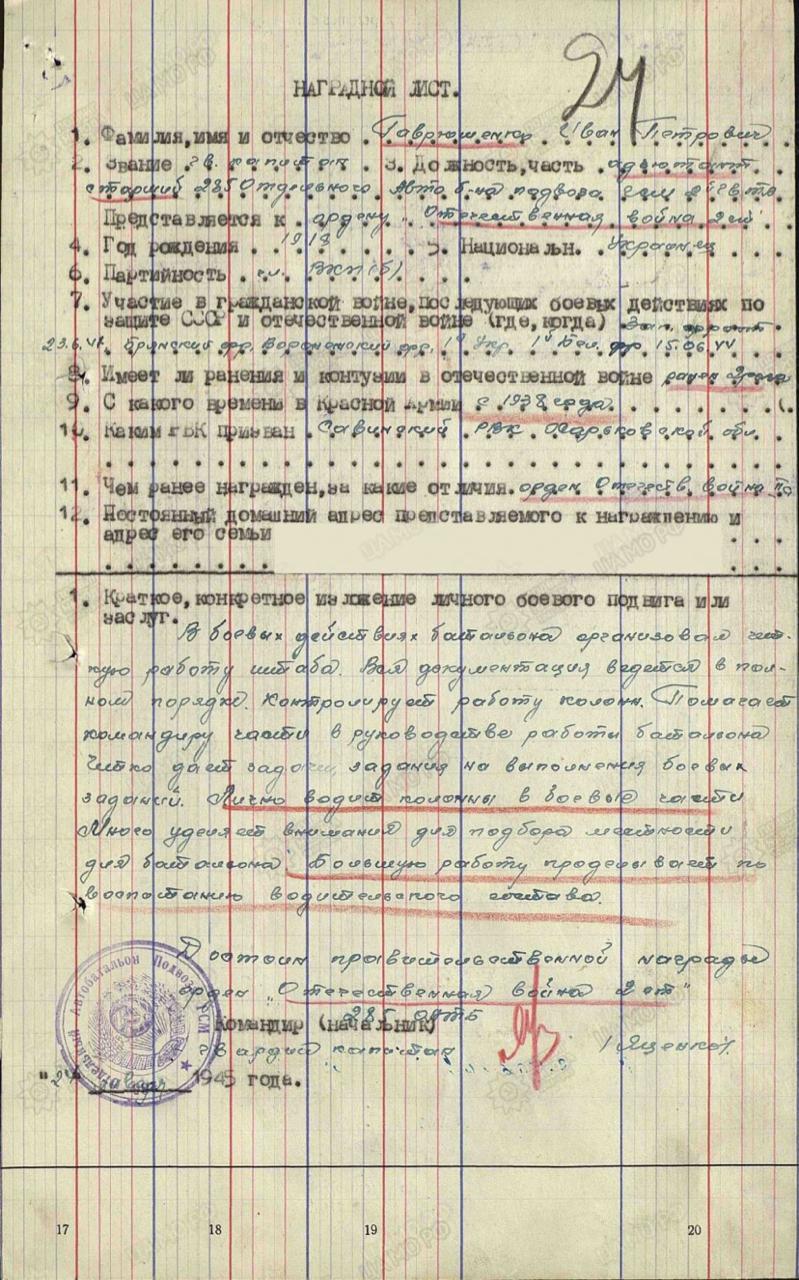 24
НАГРАДНОЙ ЛИСТ.
1. Фамилия, имя и отчество . Гаврюшенко Иван Петрович
2. Звание гв. капитан . 3. Должность, часть адъютант
старший 285 Отдельного Авто б-на подвоза
Представляется к . ордену „Отечественная война 2 ст"
4. Год рождения . 1918 . 5. Национальн. Украинец
6. Партийность . ВКП(б)
7. Участие в гражданской войне, последующих боевых действиях по
защите СССР и отечественной войне (где, когда) Зап. фронт
23.6.41, Брянский фр, Воронежский фр, 1й Укр. 1й Бел. фр 15.06.44
8. Имеет ли ранения и контузии в отечественной войне ранен
9. С какого времени в Красной Армии с 1938 года
10. Каким РВК призван . Савинский РВК Харьковской обл.
11. Чем ранее награжден, за какие отличия. орден Отечеств. война
12. Постоянный домашний адрес представляемого к награждению и
адрес его семьи
1. Краткое, конкретное изложение личного боевого подвига или
заслуг.
В боевых действиях батальона организовал чет-
кую работу штаба. Вся документация ведется в пол-
ном порядке. Контролирует работу колонн. Помогает
командиру части в руководстве работы батальона
Четко дает задачи, задания на выполнения боевых
заданий. Лично водит колонны в боевые части
Много уделяет внимания для подбора местности
для батальона. Большую работу проделывает по
воспитанию водительского состава.
Достоин правительственной награды
орден „Отечественная война 2 ст"
Командир (начальник) 285 ОАТБ
гвардии капитан / Яценко /
"24" января 1945 года.
Отдельный Автобатальон Подвоза ГСМ
17 18 19 20